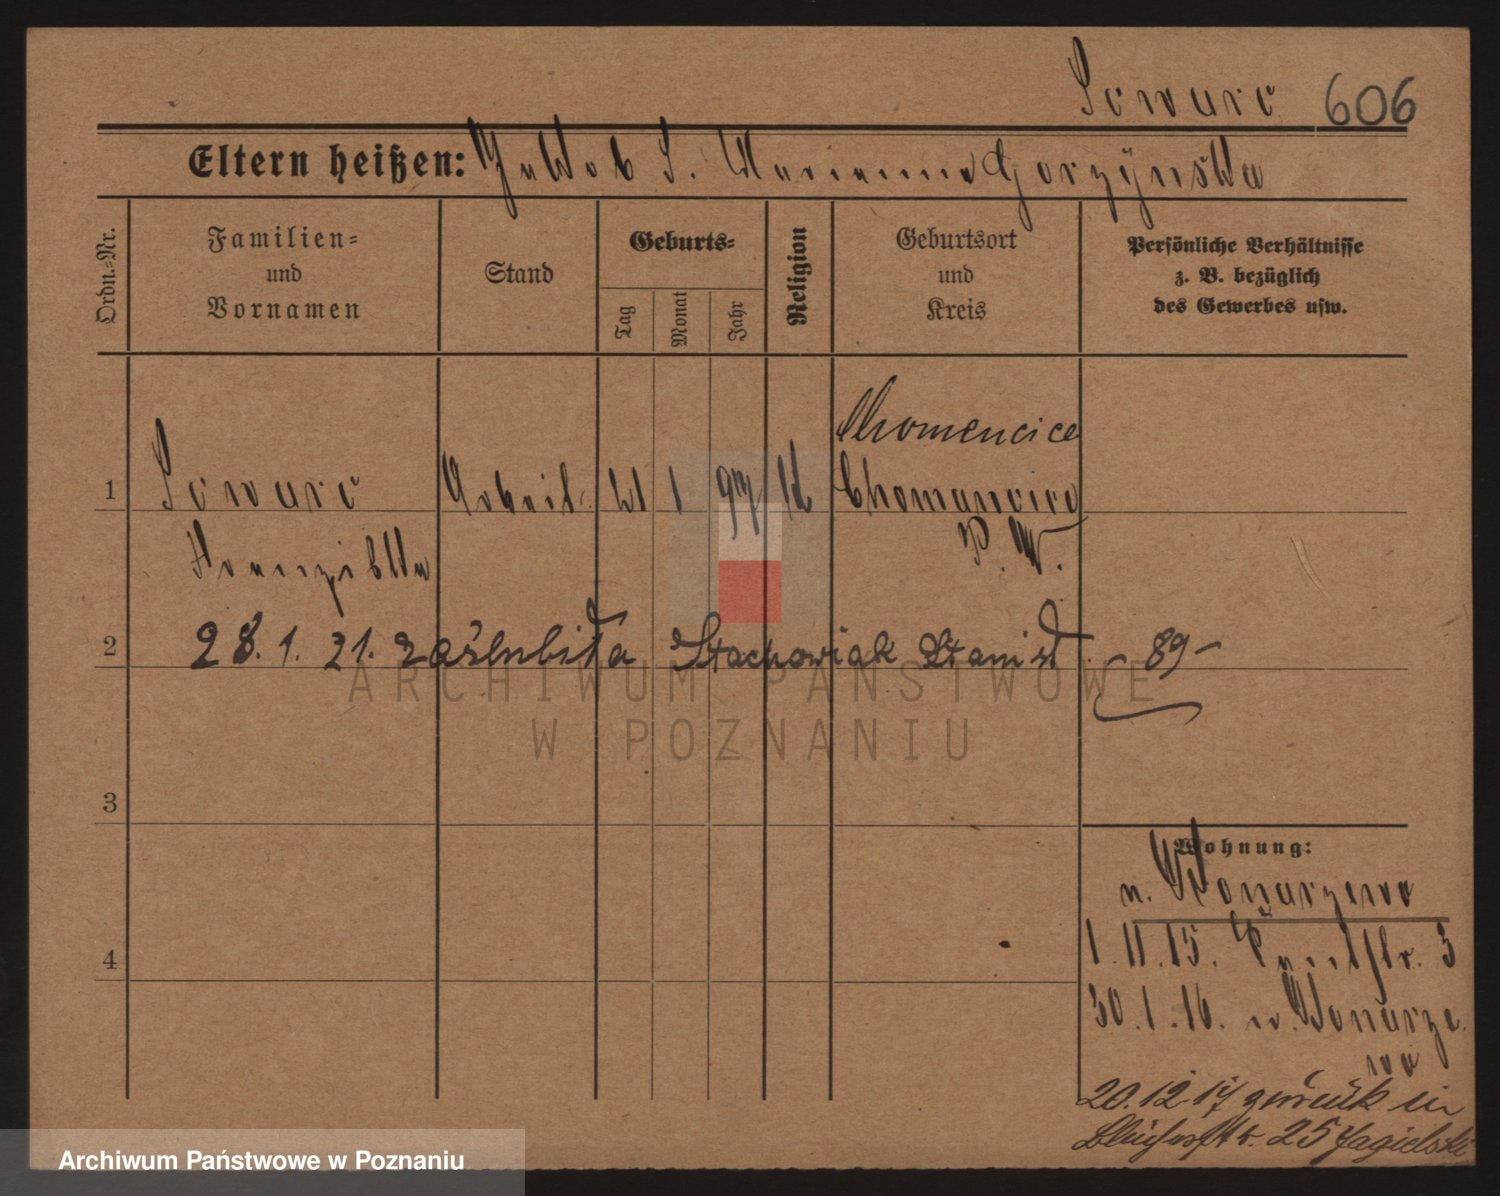 Sowarc 606
Eltern heißen: Jakob S. Marianna Gorzÿnska
Ordn.-Nr.
Familien-
und
Vornamen
Stand
Geburts-
Tag
Monat
Jahr
Religion
Geburtsort
und
Kreis
Persönliche Verhältnisse
z. B. bezüglich
des Gewerbes usw.
Chomencice
1 Sowarc Arbeit. 21 1 97 k Chomencice
Franziska P. W.
2 28. 1. 21. zaślubiła Stachowiak Stanisł. - 89 -
3
Wohnung:
n. Konarzewo
4
1. 11. 15. str. 3
30. 1. 16. n. Konarze
wo
20. 12. 17 zurück in
Blücherstr. 25 Jagielski
ARCHIWUM PAŃSTWOWE
W POZNANIU
Archiwum Państwowe w Poznaniu